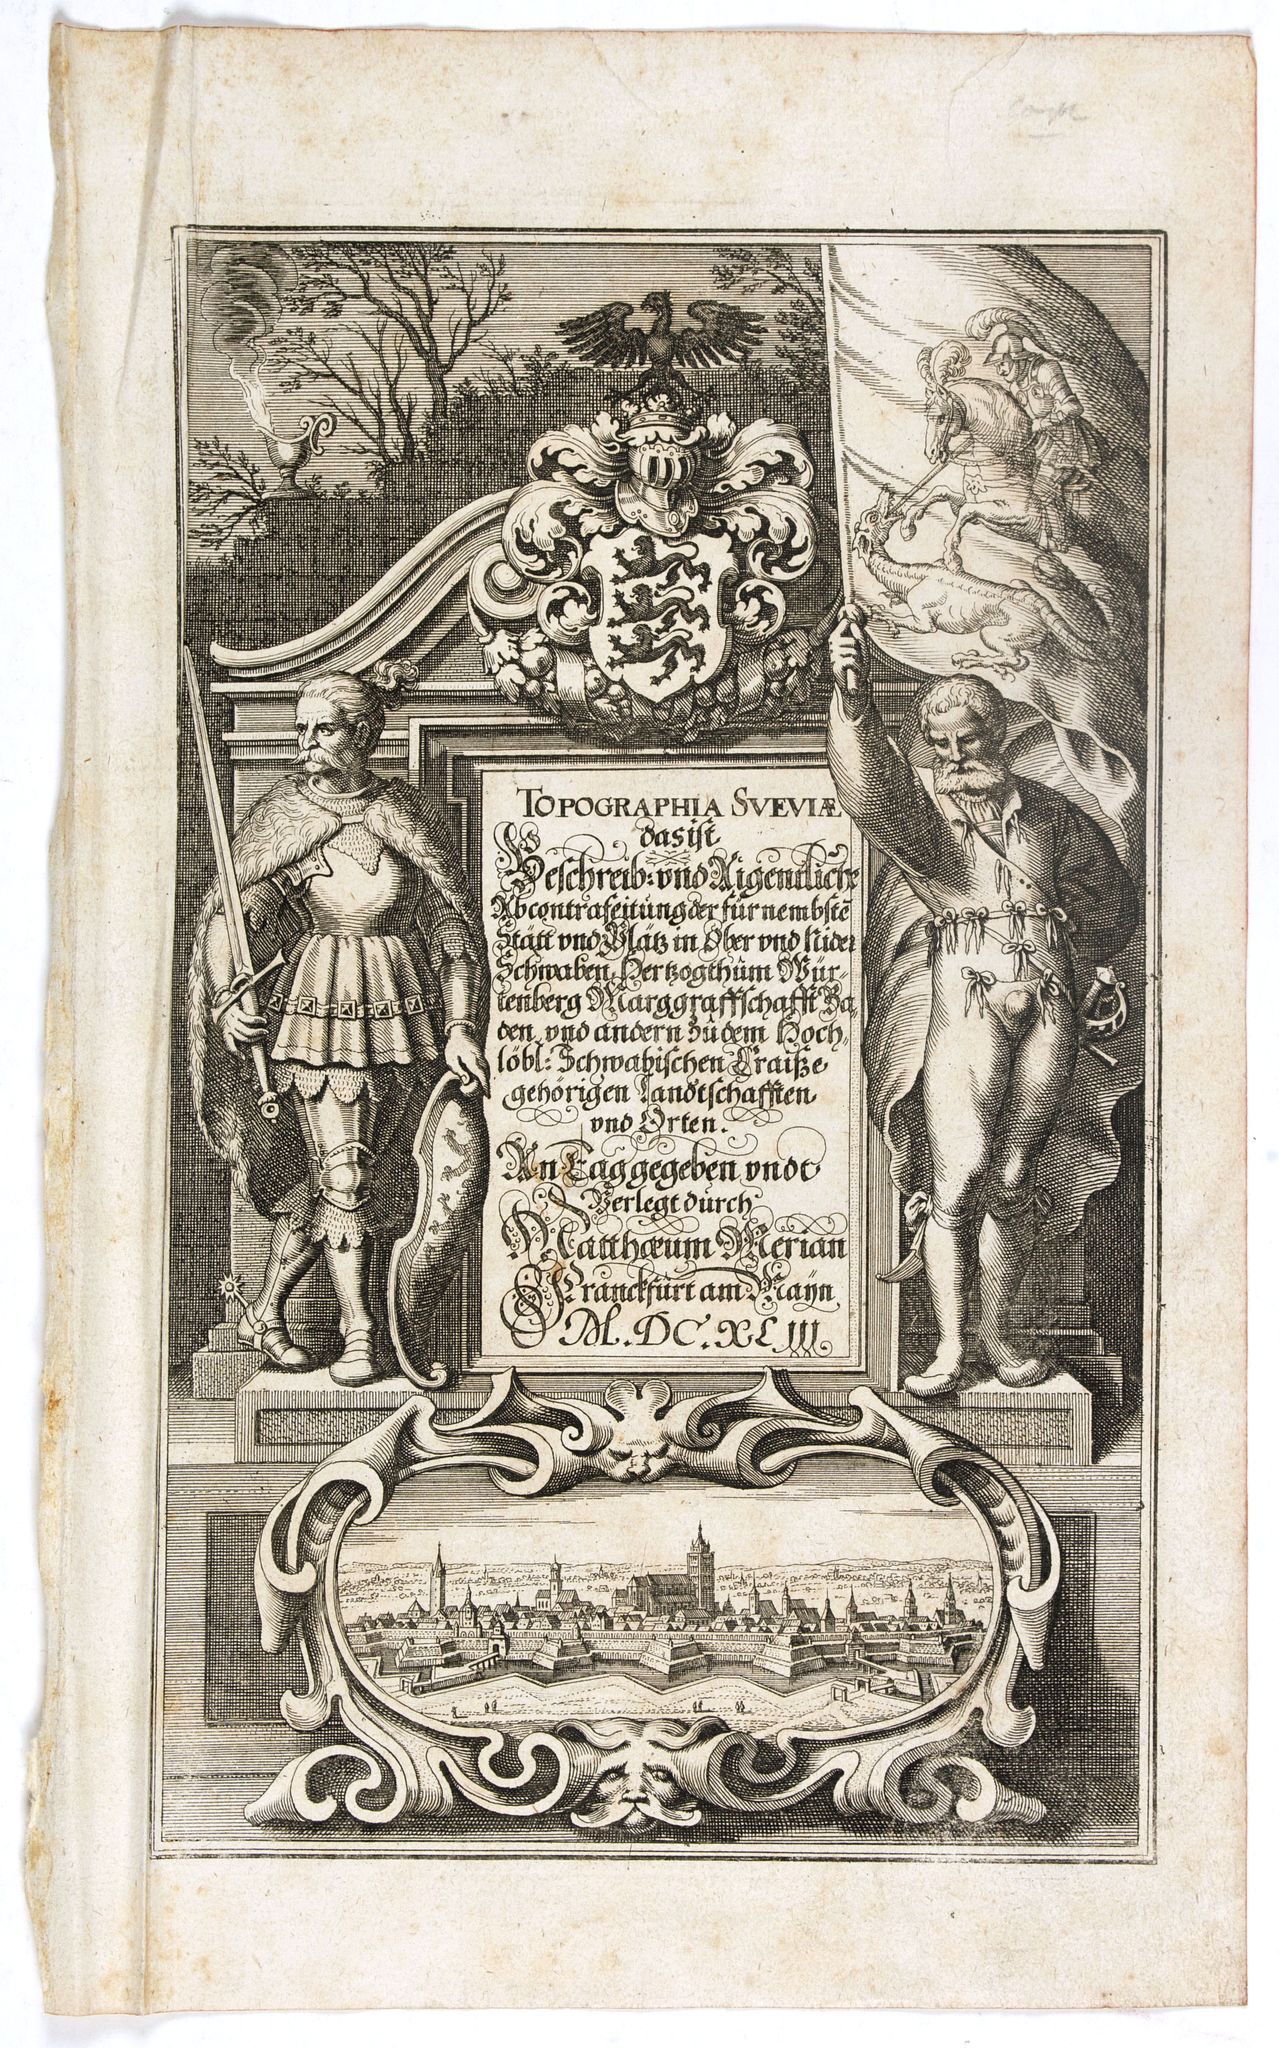 TOPOGRAPHIA SVEVIÆ
das ist
Beschreib: vnd Aigentliche
Abcontrafeitung der fürnembstē
Stätt vnd Plätz in Ober vnd Nider
Schwaben, Hertzogthum Würtenberg
Marggraffschafft Baden,
vnd andern zu dem Hochlöbl:
Schwabischen Craiße
gehörigen Landtschafften
vnd Orten.
An Tag gegeben vndt
Verlegt durch
Matthæum Merian
Franckfurt am Mayn
M.DC.XLIII.